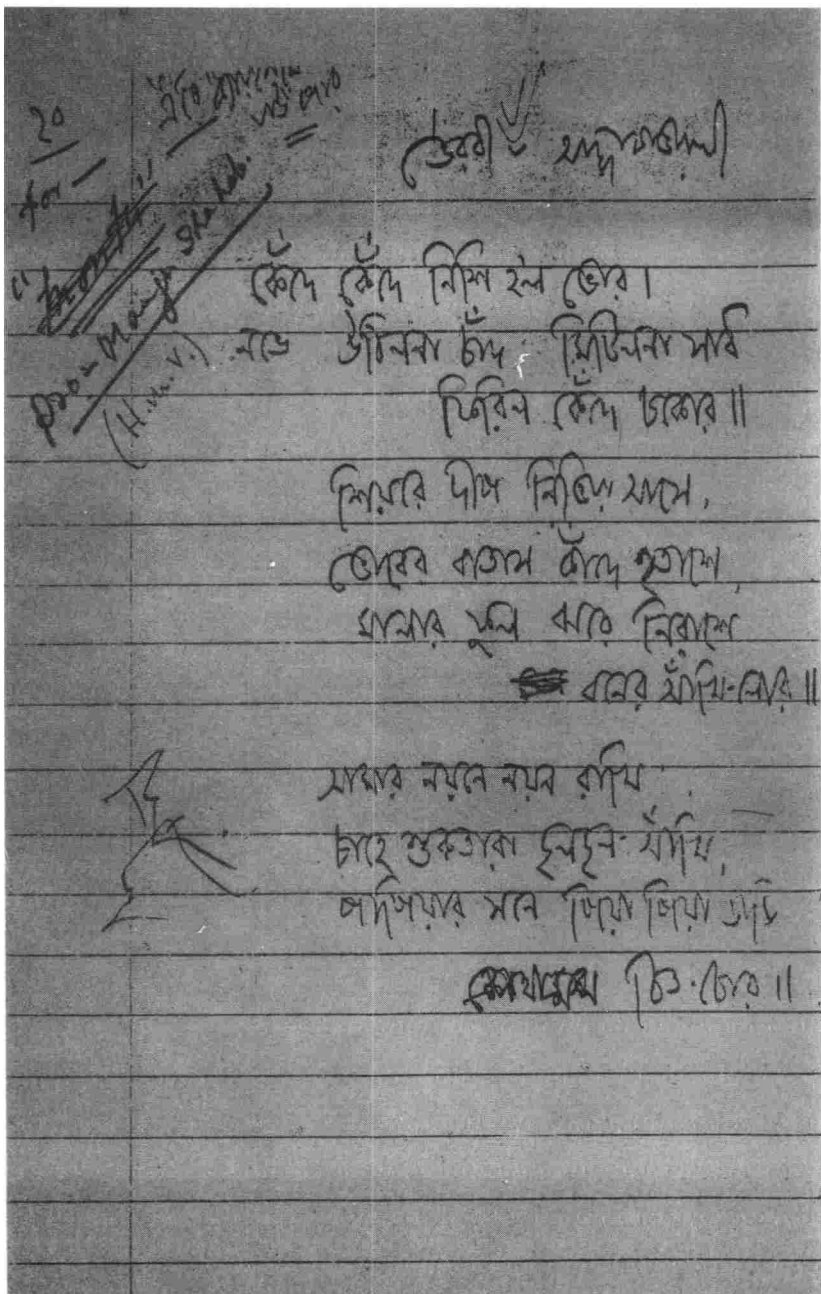 ২০
(H.M.V.)
ভৈরবী আদ্ধাকাওয়ালী
কেঁদে কেঁদে নিশি হ'ল ভোর।
নভে উঠিলনা চাঁদ মিটিলনা সাধ
ফিরিল কেঁদে চকোর॥
শিয়রে দীপ নিভিয়া আসে,
ভোরের বাতাস কাঁদে হুতাশে,
মালার ফুল ঝরে নিরাশে
বনের আঁখি-লোর॥
আমার নয়নে নয়ন রাখি
চাহে শুকতারা ছলছল-আঁখি,
পাপিয়ার সনে পিয়া পিয়া ডাকি
চিত-চোর॥